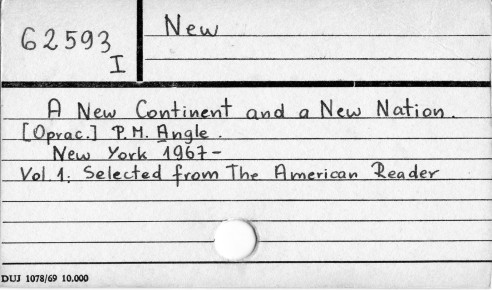 62593
I
New
A New Continent and a New Nation.
[Oprac.] P.M. Angle.
New York 1967-
Vol. 1: Selected from The American Reader
DUJ 1078/69 10.000